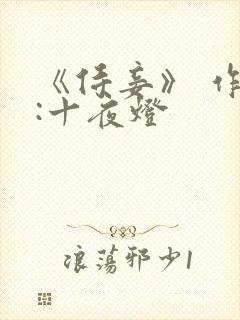 《侍妾》 作
:十夜燈
浪蕩邪少1